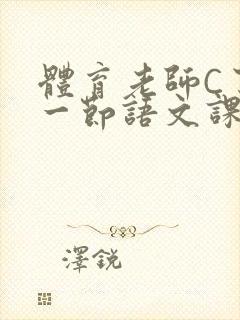 體育老師C
一節語文課
澤銳